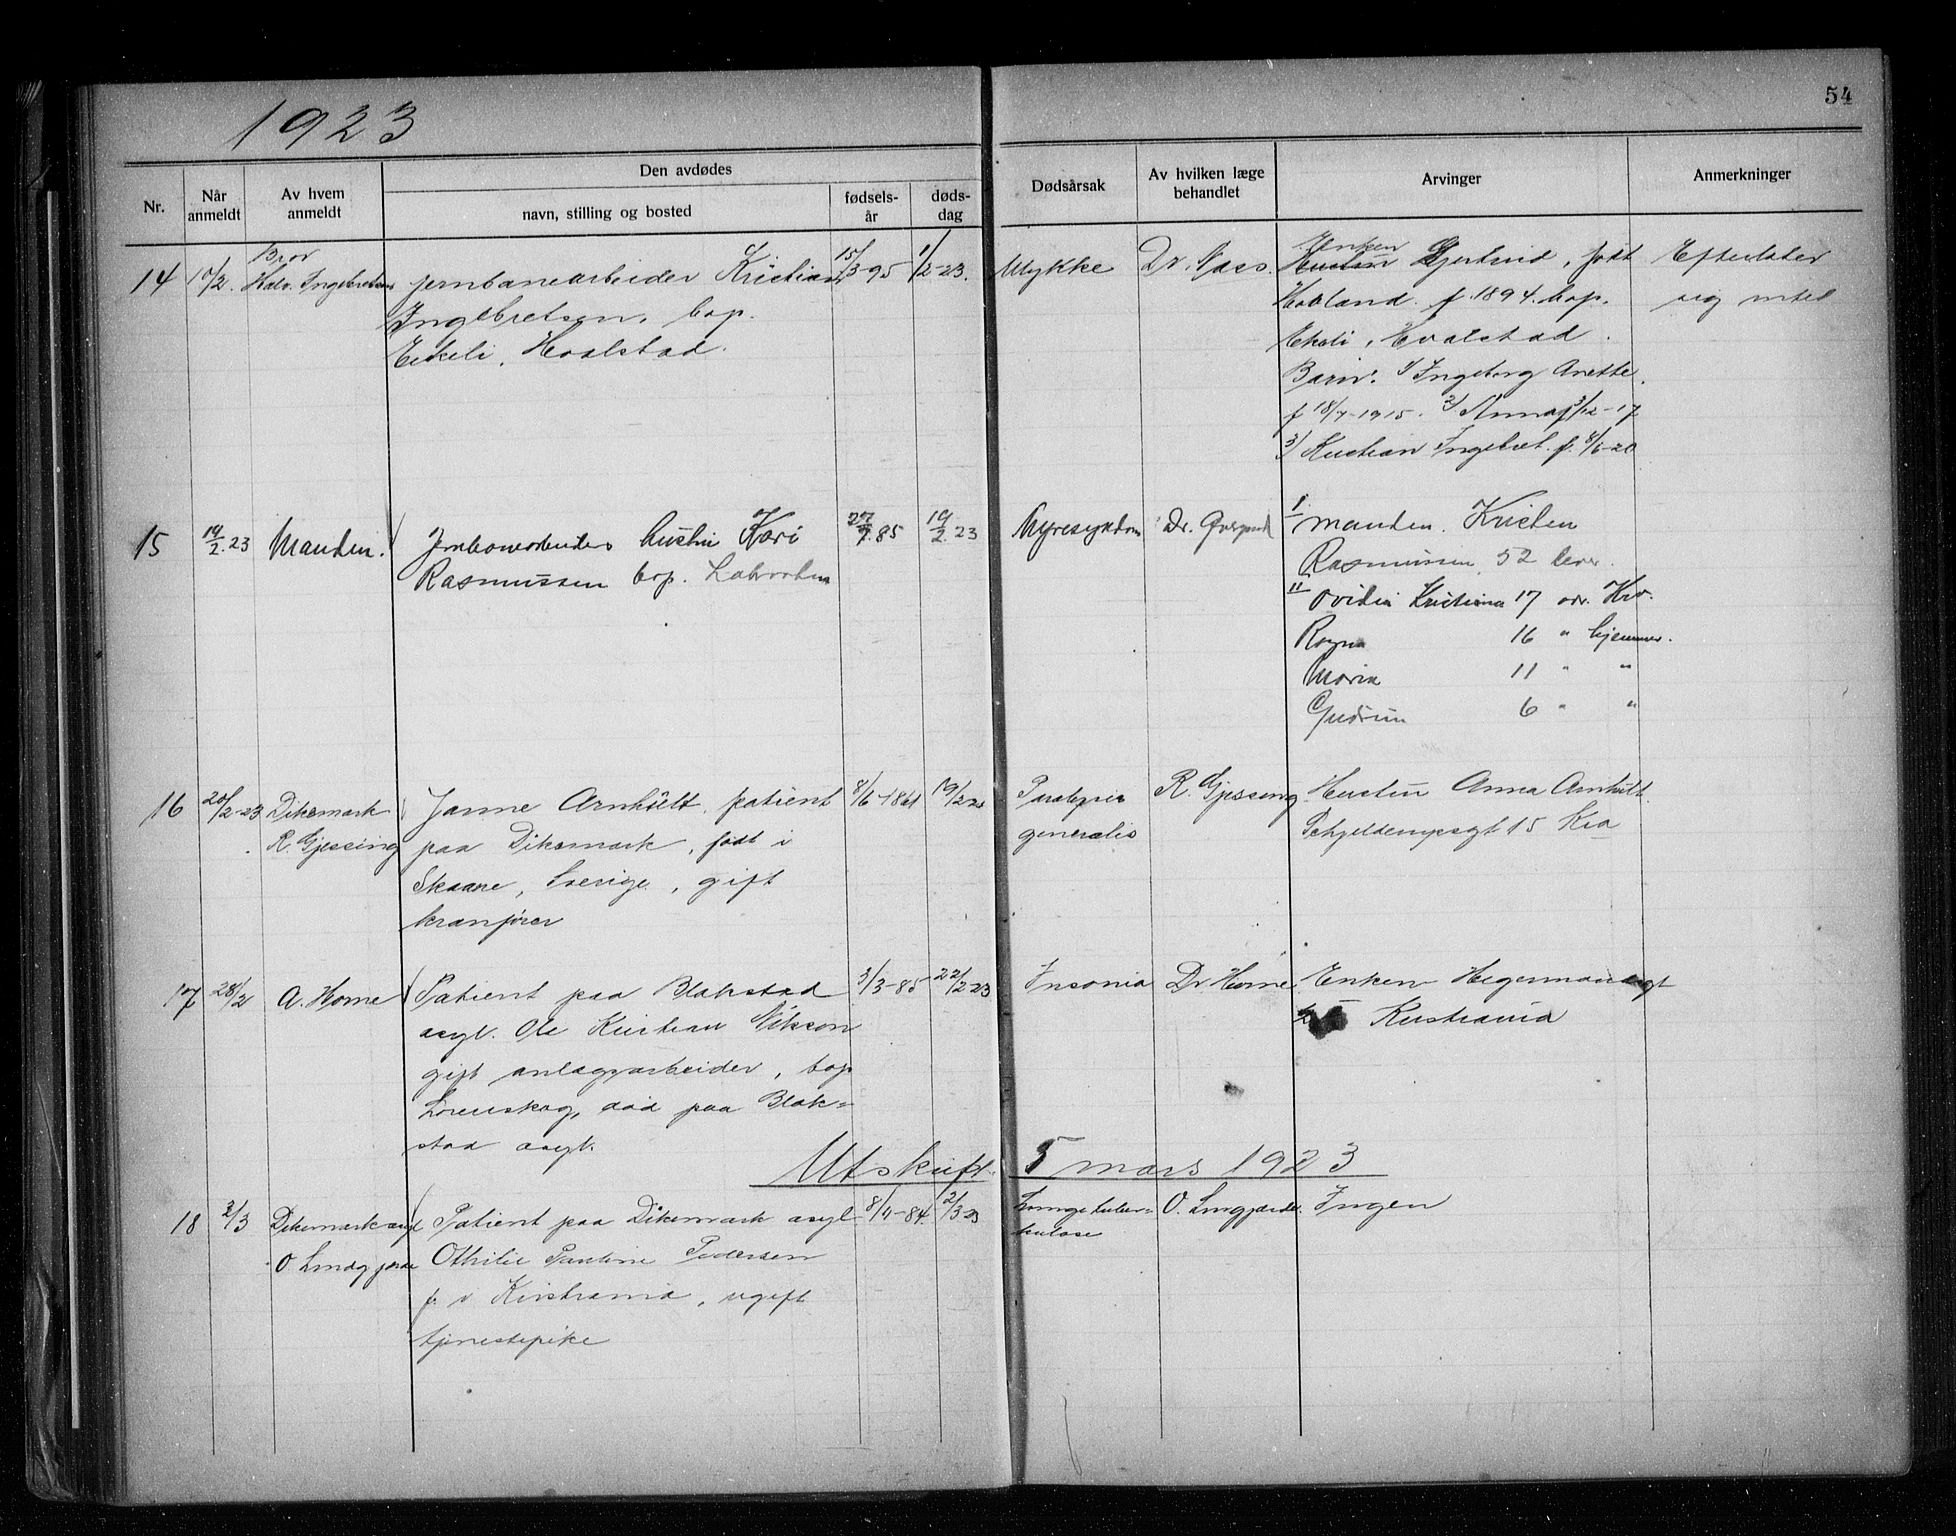 1923
54
Nr.
Når anmeldt
Av hvem anmeldt
Den avdødes
navn, stilling og bosted
fødsels-år
døds-dag
Dødsårsak
Av hvilken læge behandlet
Arvinger
Anmerkninger
14
10/2.
Bror
Halv. Ingebretsen
jernbanearbeider Kristian
Ingebretsen, bop.
Eikeli, Hvalstad.
15/3-95
1/2-23.
Ulykke
Dr.
Enken
Hustru Gjertrud, født
Hovland f. 1894. bop.
Ekeli, Hvalstad.
Barn: 1/ Ingeborg Anette.
f 18/7-1915. 2/ Anna f 3/12-17
3/ Kristian Ingebret. f. 8/6-20
Efterlater
sig intet
15
19/2.23
Manden.
Jernbanearbeiders hustru Kari
Rasmussen bop.
27/7.85
19/2.23
Nyresygdom
Dr.
I. manden. Kristen
Rasmussen, 52 lever.
II Ovidia Kristiana 17 aar. Kra.
Ragna 16 " hjemme.
Maria 11 " "
Gudrun 6 " "
16
20/2-23
Dikemark
R. Gjessing
Janne Arnhült, patient
paa Dikemark, født i
Skaane, Sverige, gift
kranfører
8/6-1861
19/2 23
Paralysis
generalis
R. Gjessing
Hustru Anna Arnhült.
Schjeldrupsgt 15 Kra
17
28/2
A. Horne
Patient paa Blakstad
asyl. Ole Kristian Nilsson
gift anlægsarbeider, bop
Lørenskog, død paa Blak=
stad asyl.
3/3-85
22/2-23
Insania
Dr Horne
Enken Hegermannsgt
Kristiania
Utskrift 5 mars 1923
18
2/3
Dikemark asyl
O Lingjærde
Patient paa Dikemark asyl
Othilie Pauline Pedersen
f. i Kristiania, ugift
tjenestepike
8/4-84
2/3 23
Lungetuber=
kulose
O. Lingjærde.
Ingen